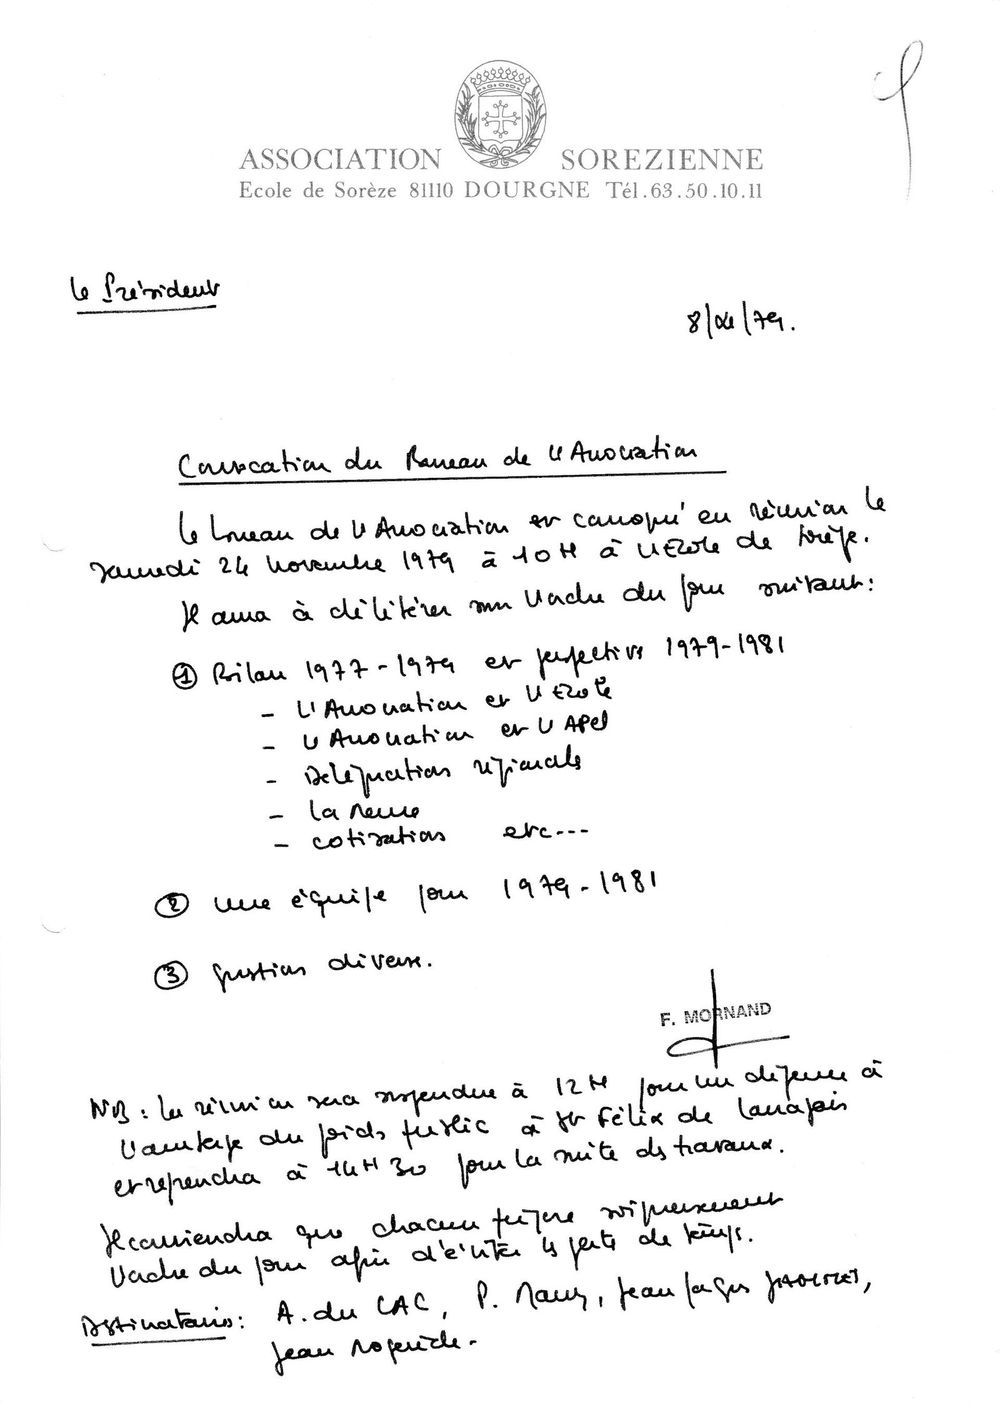 ASSOCIATION SOREZIENNE
Ecole de Sorèze 81110 DOURGNE Tél.63.50.10.11
Le Président
8/ /79.
Convocation du Bureau de l'Association
Le bureau de l'Association est convoqué en réunion le
samedi 24 novembre 1979 à 10H à l'Ecole de Sorèze.
Il aura à délibérer sur l'ordre du jour suivant:
① Bilan 1977-1979 et perspectives 1979-1981
- L'Association et l'Ecole
- L'Association et l'APEL
- Délégations régionales
- La revue
- cotisations etc---
② une équipe pour 1979-1981
③ questions diverses.
F. MORNAND
NB: La réunion sera suspendue à 12H pour un déjeuner à
l'auberge du poids public à St Félix de Lauragais
et reprendra à 14H30 pour la suite des travaux.
Il conviendra que chacun prépare soigneusement
l'ordre du jour afin d'éviter les pertes de temps.
Destinataires: A. du CAC, P. , Jean Jacques ,
Jean